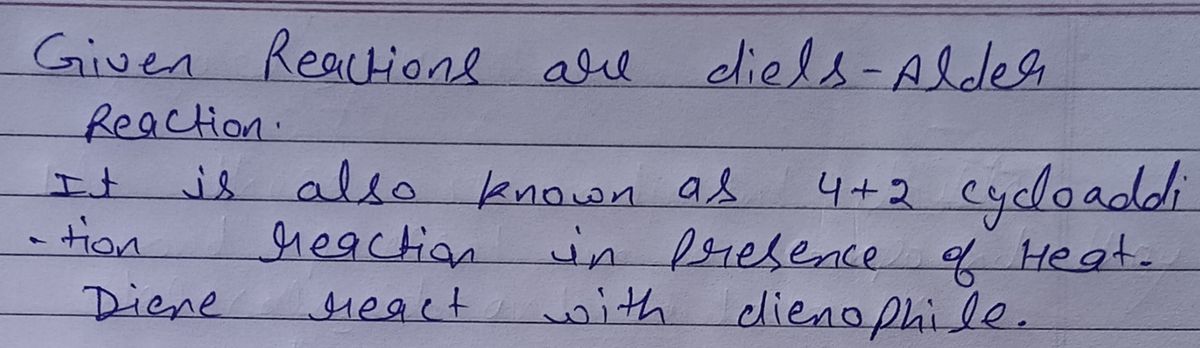 Given Reactions are diels-Alder
Reaction.
It is also known as 4+2 cycloaddi
-tion reaction in Presence of Heat.
Diene react with dienophile.